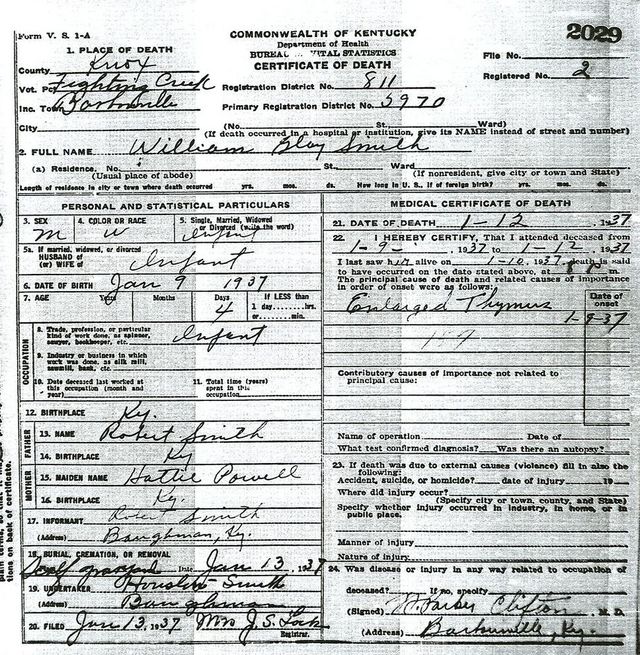 Form V. S. 1-A
COMMONWEALTH OF KENTUCKY
2029
Department of Health
BUREAU VITAL STATISTICS
CERTIFICATE OF DEATH
File No.
Registered No. 2
1. PLACE OF DEATH
County Knox
Vot. Pct Fighting Creek
Inc. Town Barbourville
City
Registration District No. 811
Primary Registration District No. 5970
(No. St. Ward)
(If death occurred in a hospital or institution, give its NAME instead of street and number)
2. FULL NAME William Smith
(a) Residence. No. St. Ward
(Usual place of abode) (If nonresident, give city or town and State)
Length of residence in city or town where death occurred yrs. mos. ds. How long in U. S., if of foreign birth? yrs. mos. ds.
PERSONAL AND STATISTICAL PARTICULARS
3. SEX M
4. COLOR OR RACE W
5. Single, Married, Widowed or Divorced (write the word) Infant
5a. If married, widowed, or divorced
HUSBAND of
(or) WIFE of Infant
6. DATE OF BIRTH Jan 9 1937
7. AGE Years Months Days 4 If LESS than 1 day hrs. or min.
OCCUPATION
8. Trade, profession, or particular kind of work done, as spinner, sawyer, bookkeeper, etc. Infant
9. Industry or business in which work was done, as silk mill, sawmill, bank, etc.
10. Date deceased last worked at this occupation (month and year)
11. Total time (years) spent in this occupation
12. BIRTHPLACE Ky.
FATHER
13. NAME Robert Smith
14. BIRTHPLACE Ky
MOTHER
15. MAIDEN NAME Hattie Powell
16. BIRTHPLACE Ky.
17. INFORMANT Robert Smith
(Address) Baughman, Ky.
18. BURIAL, CREMATION, OR REMOVAL
graveyard Date Jan 13, 1937
19. UNDERTAKER Houston Smith
(Address) Baughman
20. FILED Jan 13, 1937 Mrs J. S. Lock
Registrar.
MEDICAL CERTIFICATE OF DEATH
21. DATE OF DEATH 1-12 1937
22. I HEREBY CERTIFY, That I attended deceased from
1-9 1937 to 1-12 1937
I last saw him alive on 1-10, 1937, death is said
to have occurred on the date stated above, at m
The principal cause of death and related causes of importance
in order of onset were as follows:
Date of onset
Enlarged Thymus
1-9-37
Contributory causes of importance not related to
principal cause:
Name of operation Date of
What test confirmed diagnosis? Was there an autopsy?
23. If death was due to external causes (violence) fill in also the
following:
Accident, suicide, or homicide? date of injury 19
Where did injury occur?
(Specify city or town, county, and State)
Specify whether injury occurred in industry, in home, or in
public place.
Manner of injury
Nature of injury
24. Was disease or injury in any way related to occupation of
deceased? If no, specify
(Signed) Parker Clifton M. D.
(Address) Barbourville, Ky.
plain terms, so that it
tions on back of certificate.